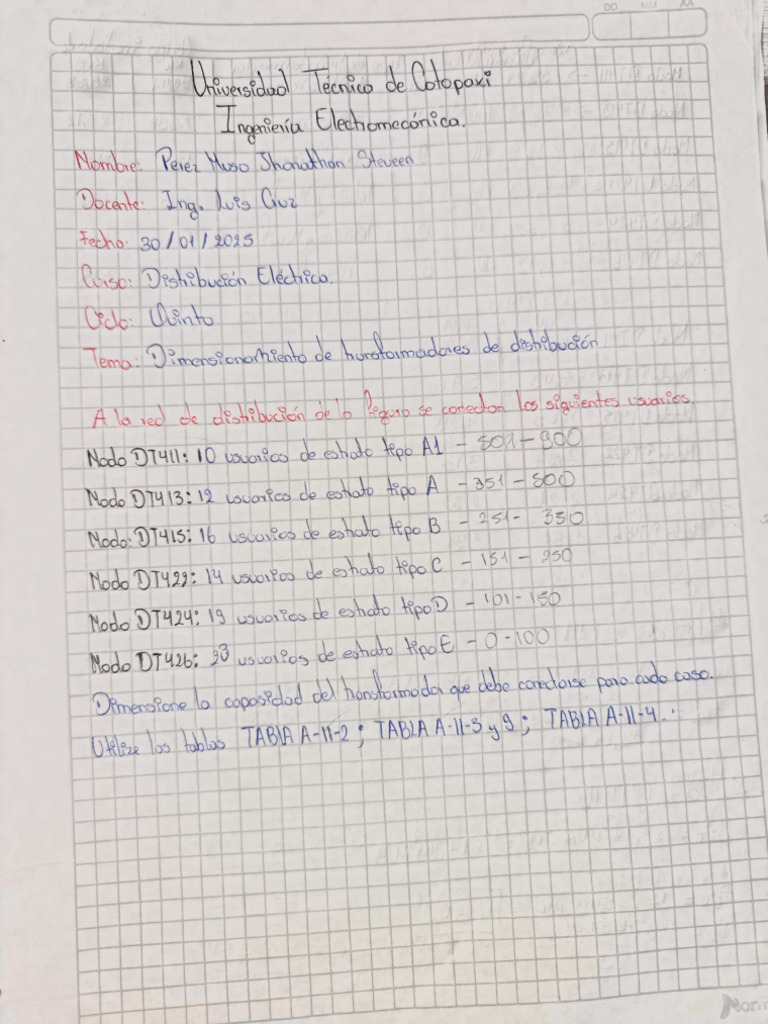 DD MM AA
Universidad Técnica de Cotopaxi
Ingeniería Electromecánica.
Nombre: Perez Muso Jhonathan Steveen
Docente: Ing. Luis Cruz
Fecha: 30/01/2025
Curso: Distribución Eléctrica.
Ciclo: Quinto
Tema: Dimensionamiento de transformadores de distribución
A la red de distribución de la figura se conectan los siguientes usuarios.
Nodo DT411: 10 usuarios de estrato tipo A1 - 501 - 900
Nodo DT413: 12 usuarios de estrato tipo A - 351 - 500
Nodo: DT415: 16 usuarios de estrato tipo B - 251 - 350
Nodo DT422: 14 usuarios de estrato tipo C - 151 - 250
Nodo DT424: 19 usuarios de estrato tipo D - 101 - 150
Nodo DT426: 23 usuarios de estrato tipo E - 0 - 100
Dimensione la capasidad del transformador que debe conectarse para cada caso.
Utilize las tablas TABLA A-11-2; TABLA A-11-3 y 9; TABLA A-11-4.
Norm